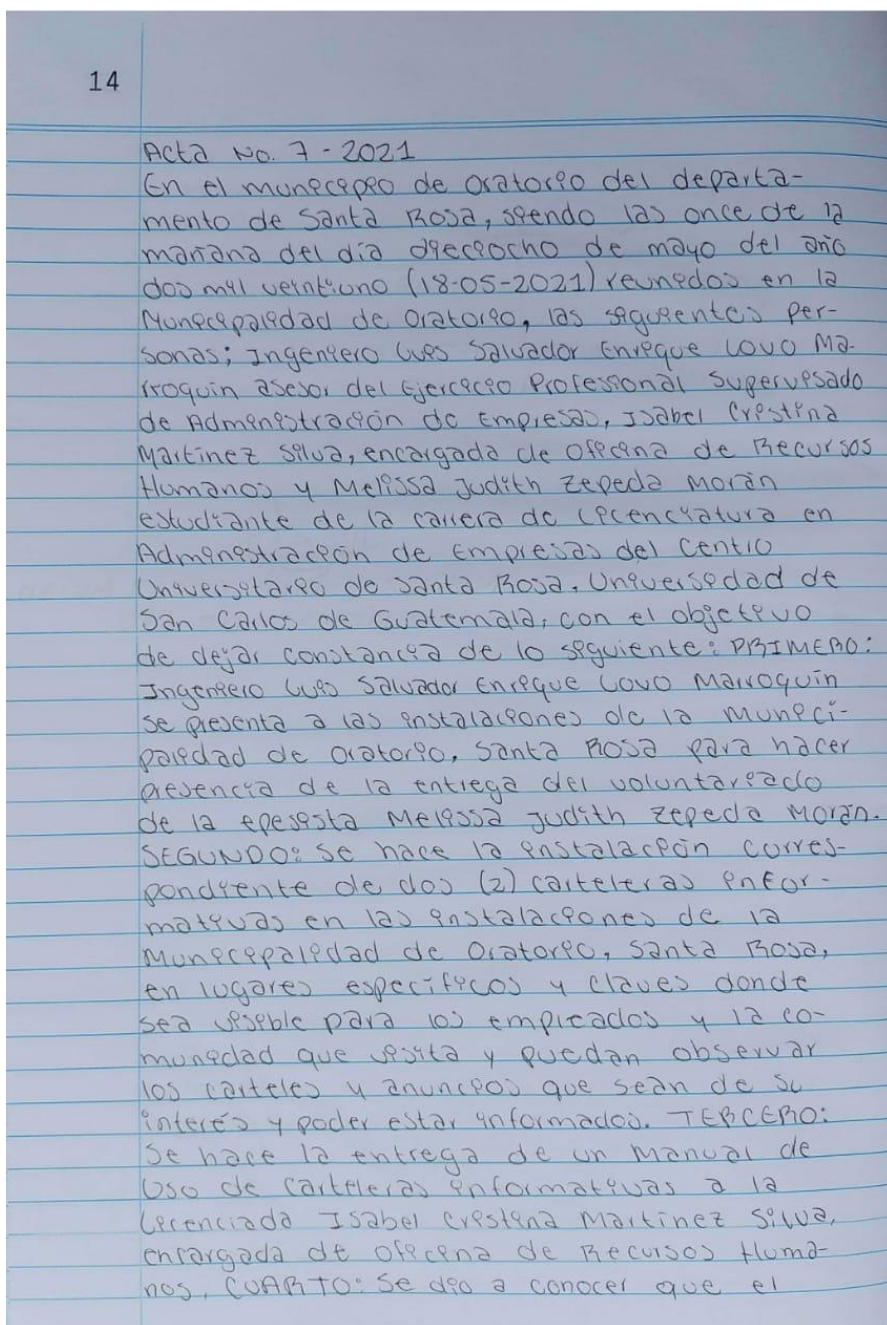 14
Acta No. 7 - 2021
En el municipio de Oratorio del departa-
mento de Santa Rosa, siendo las once de la
mañana del día dieciocho de mayo del año
dos mil veintiuno (18-05-2021) reunidos en la
Municipalidad de Oratorio, las siguientes per-
sonas; Ingeniero Luis Salvador Enrique Lovo Ma-
rroquín asesor del Ejercicio Profesional Supervisado
de Administración de Empresas, Isabel Cristina
Martínez Silva, encargada de Oficina de Recursos
Humanos y Melissa Judith Zepeda Morán
estudiante de la carrera de Licenciatura en
Administración de Empresas del Centro
Universitario de Santa Rosa, Universidad de
San Carlos de Guatemala, con el objetivo
de dejar constancia de lo siguiente: PRIMERO:
Ingeniero Luis Salvador Enrique Lovo Marroquín
se presenta a las instalaciones de la Munici-
palidad de Oratorio, Santa Rosa para hacer
presencia de la entrega del voluntariado
de la epesista Melissa Judith Zepeda Morán.
SEGUNDO: Se hace la instalación corres-
pondiente de dos (2) carteleras infor-
mativas en las instalaciones de la
Municipalidad de Oratorio, Santa Rosa,
en lugares específicos y claves donde
sea visible para los empleados y la co-
munidad que visita y puedan observar
los carteles y anuncios que sean de su
interés y poder estar informados. TERCERO:
Se hace la entrega de un Manual de
Uso de Carteleras informativas a la
Licenciada Isabel Cristina Martínez Silva,
encargada de Oficina de Recursos Huma-
nos. CUARTO: Se dio a conocer que el